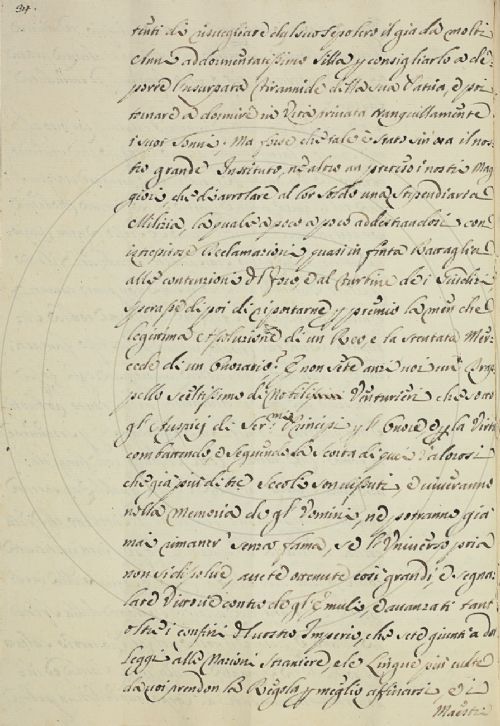 tenti di risvegliare dal suo Sepolcro il già da molti
Anni addormentatissimo Silla p consigliarlo a de-
porre l'usurpata Tirannide della sua Patria, e poi
tornare a dormire in Vita privata tranquillamente
i suoi sonni. Ma forse che tale è stato sin ora il nos-
tro grande Instituto, ne altro an preteso i nostri Mag-
giori che di arrolare al lor soldo una Stipendiaria
Milizia, la quale a poco a poco addestrandosi con
Reclamazioni quasi in finta Battaglia
alle contenzioni del Foro e al Turbine de i Giudizi
speraße di poi di riportarne p premio la men che
legitima aßoluzione di un Reo, e la stentata Mer-
cede di un Onorario? E non sete anzi voi un
pello sceltissimo di Nobilissimi Venturieri che sotto
gl'Auspicj di Ser.mi Principi p l'Onore e p la Virtù
combattendo, e seguendo la scorta di quei Valorosi
che già più di tre Secoli son vissuti, e viveranno
nella memoria de gl'Uomini, ne potranno già
mai rimaner senza fama, se l'Universo pria
non si dissolve, avete ottenute così grandi e segna-
late Vittorie contro de gl'Emuli, e avanzati tant'
oltre i confini del vostro Imperio, che sete giunti a dar
Leggi alle Nazioni straniere, e le Lingue più culte
da voi prendon la Regola p meglio affinarsi e i
Maestri